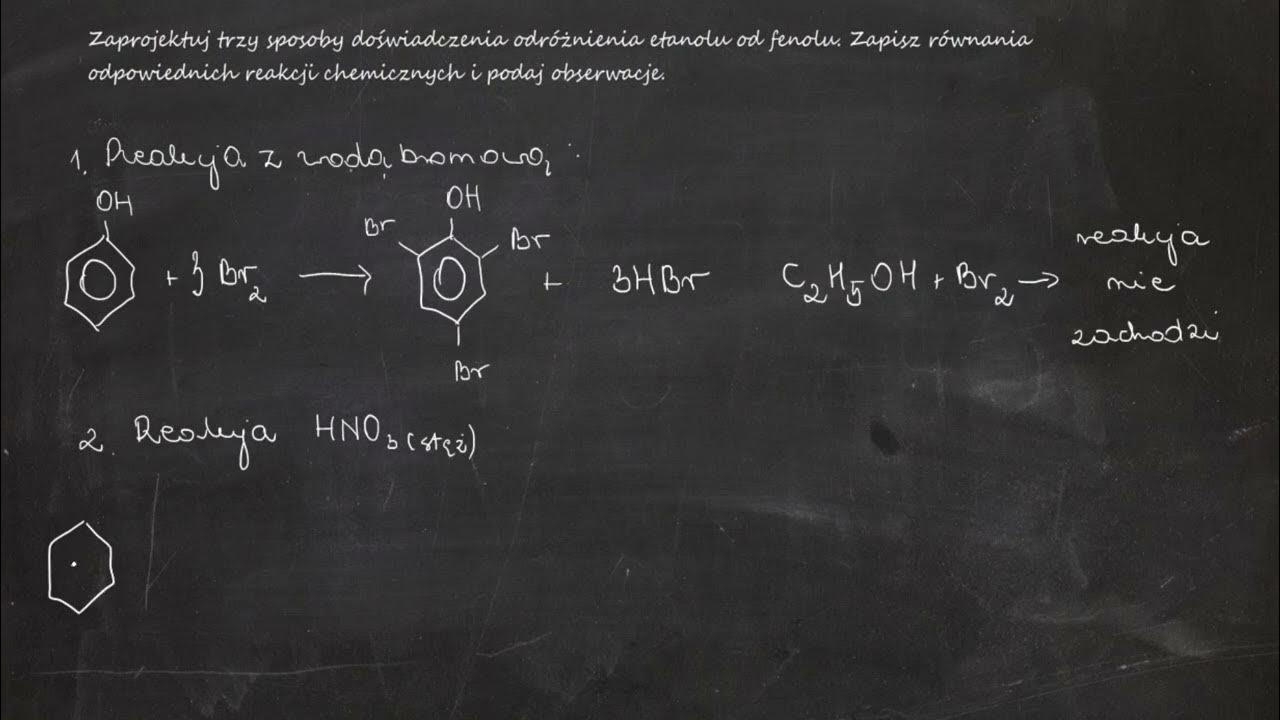 Zaprojektuj trzy sposoby doświadczenia odróżnienia etanolu od fenolu. Zapisz równania
odpowiednich reakcji chemicznych i podaj obserwacje.
1. Reakcja z wodą bromową :
OH
+ 3 Br₂ ⟶
OH
Br
Br
Br
+ 3HBr
C₂H₅OH + Br₂ → reakcja
nie
zachodzi
2. Reakcja HNO₃ (stęż)